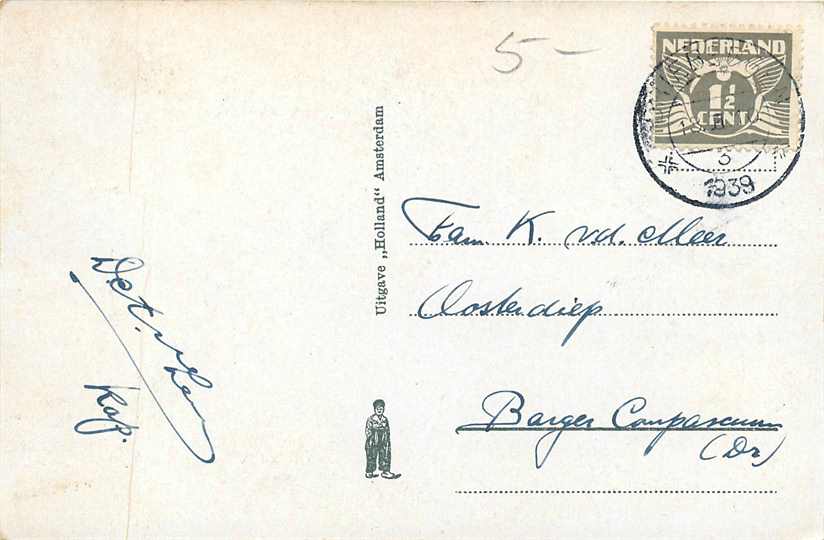 5-
NEDERLAND
1½
CENT
3
1939
Uitgave „Holland" Amsterdam
Fam. K. v.d. Meer
Oosterdiep
Barger Compascuum
(Dr)
Kap.